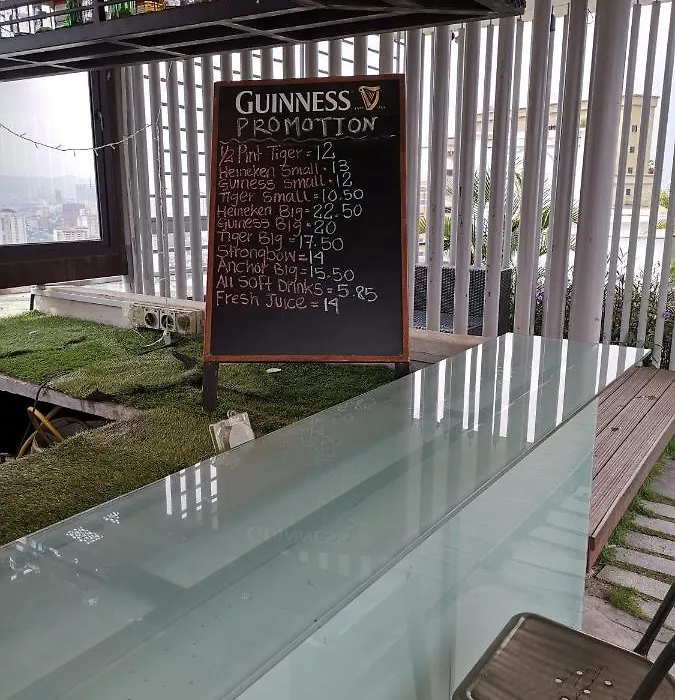 GUINNESS
PROMOTION
1/2 Pint Tiger = 12
Heineken Small = 13
Guiness Small = 12
Tiger Small = 10.50
Heineken Big = 22.50
Guiness Big = 20
Tiger Big = 17.50
Strongbow = 14
Anchor Big = 15.50
All Soft Drinks = 5.85
Fresh Juice = 14